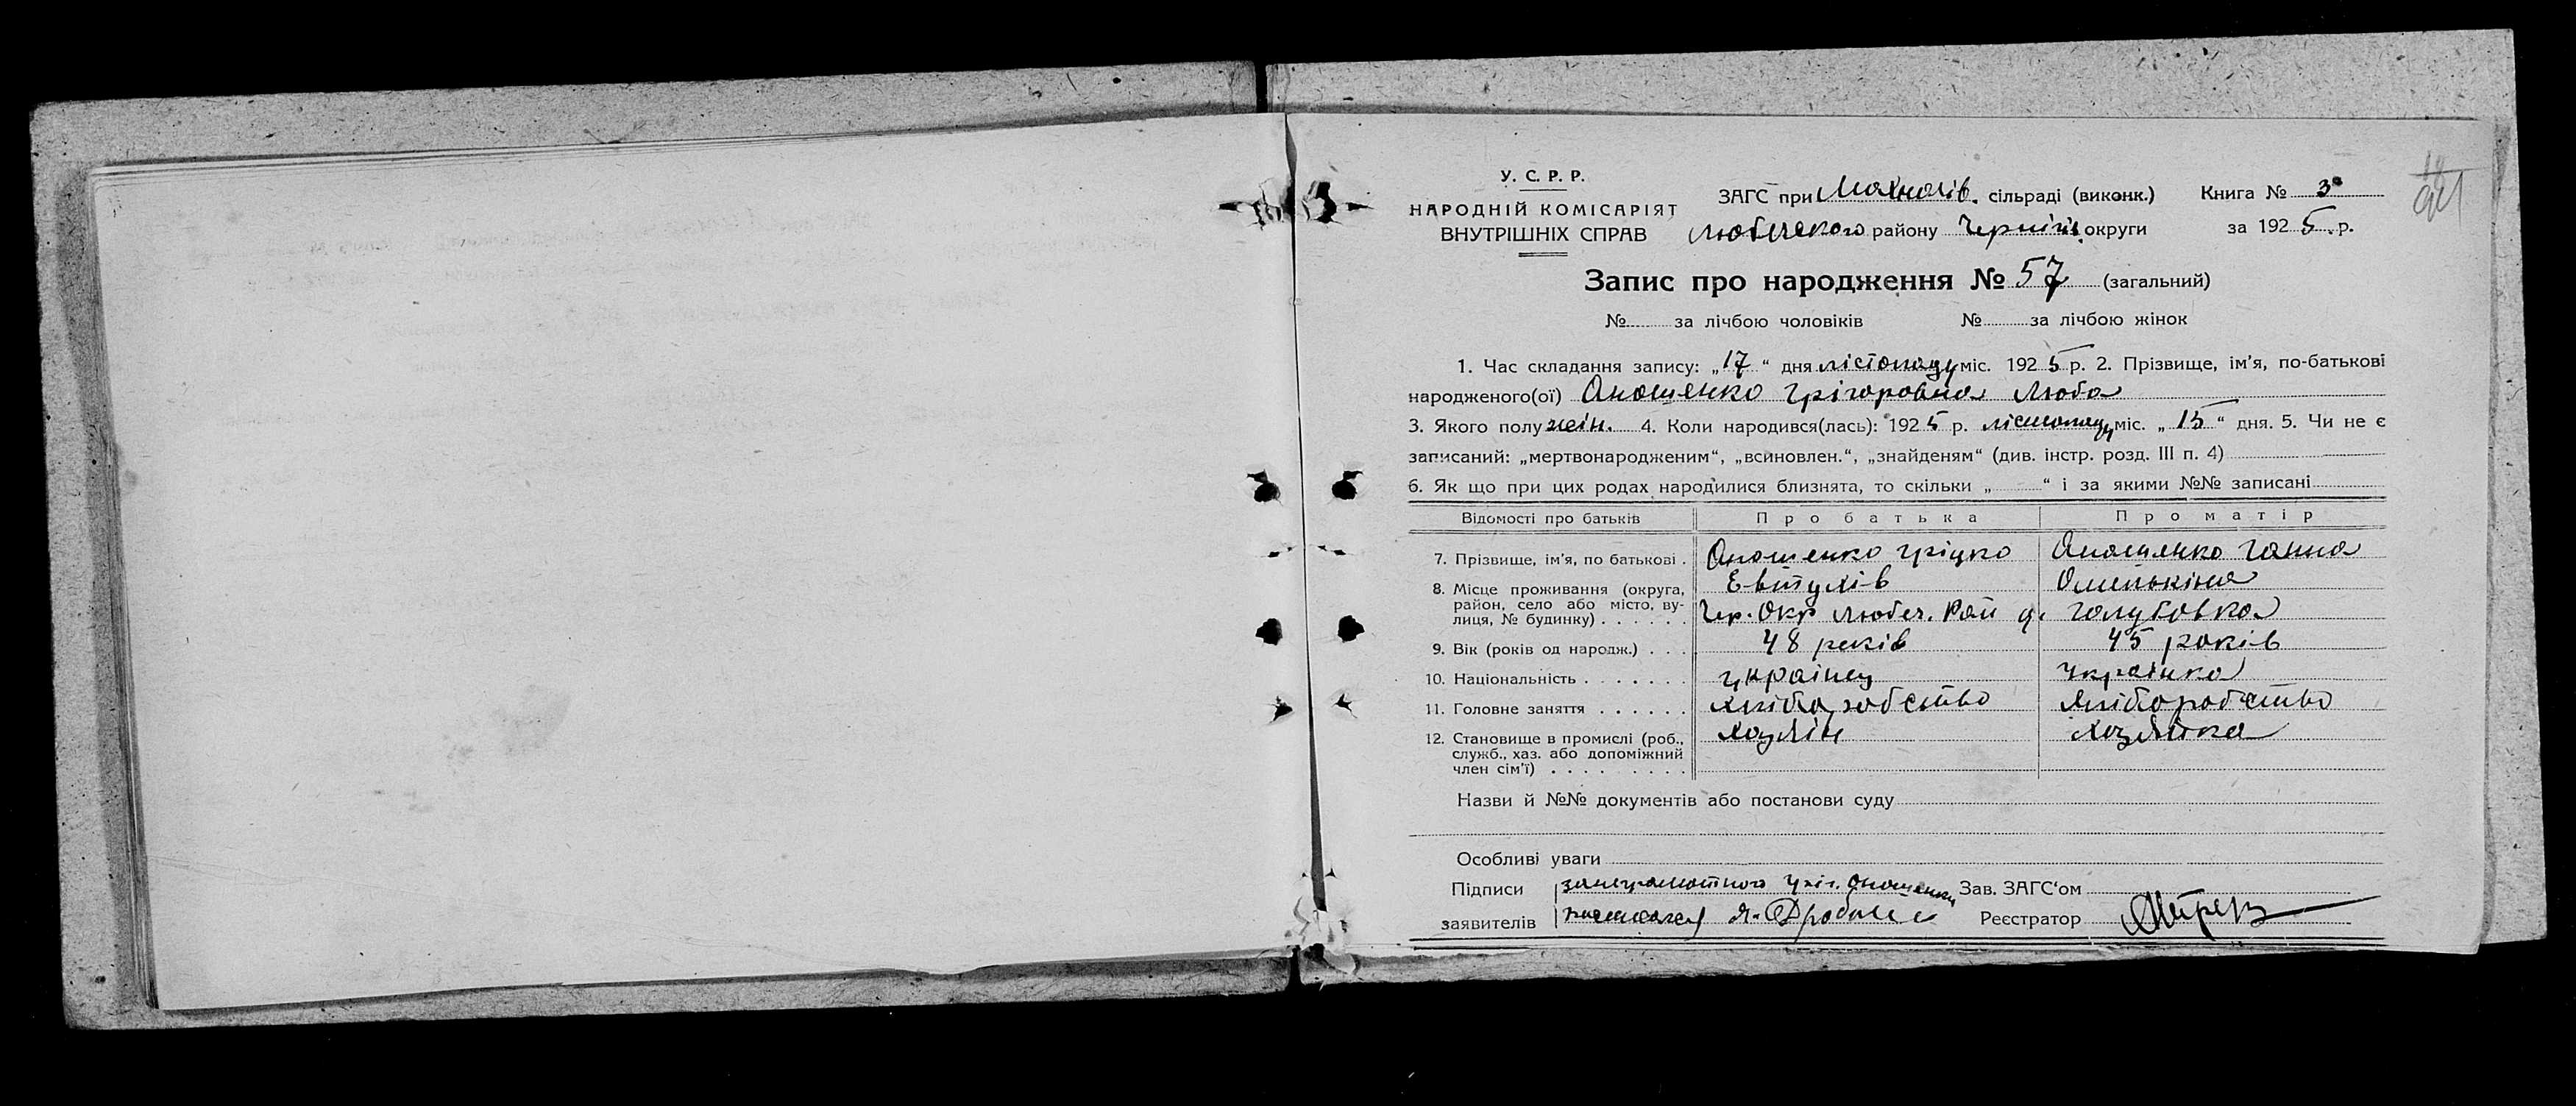 У. С. Р. Р.
НАРОДНІЙ КОМІСАРІЯТ
ВНУТРІШНІХ СПРАВ
ЗАГС при Махнаців. сільраді (виконк.) Книга № 3
Любецького району Черніг. округи за 1925 р.
Запис про народження № 57 (загальний)
№ за лічбою чоловіків № за лічбою жінок
1. Час складання запису: „17“ дня лістопаду міс. 1925 р. 2. Прізвище, ім'я, по-батькові
народженого(ої) Аношенко Грігоровна Люба
3. Якого полу жін. 4. Коли народився(лась): 1925 р. лістопаду міс. „15“ дня. 5. Чи не є
записаний: „мертвонародженим“, „всиновлен.“, „знайденям“ (див. інстр. розд. III п. 4)
6. Як що при цих родах народилися близнята, то скільки „ “ і за якими №№ записані
Відомості про батьків Про батька Про матір
7. Прізвище, ім'я, по батькові . Аношенко Гріцко Аношенко Ганна
Евтухів
8. Місце проживання (округа,
район, село або місто, ву-
лиця, № будинку) . . . . . . Чер. Окр Любеч. Рай д. Голубовка
9. Вік (років од народж.) . . . 48 років 45 років
10. Національність . . . . . . . українец українка
11. Головне заняття . . . . . . хліборобство хліборобство
12. Становище в промислі (роб.,
служб., хаз. або допоміжний
член сім'ї) . . . . . . . . . хозяін хозяйка
Назви й №№ документів або постанови суду
Особливі уваги
Підписи Зав. ЗАГС'ом
заявителів Реєстратор